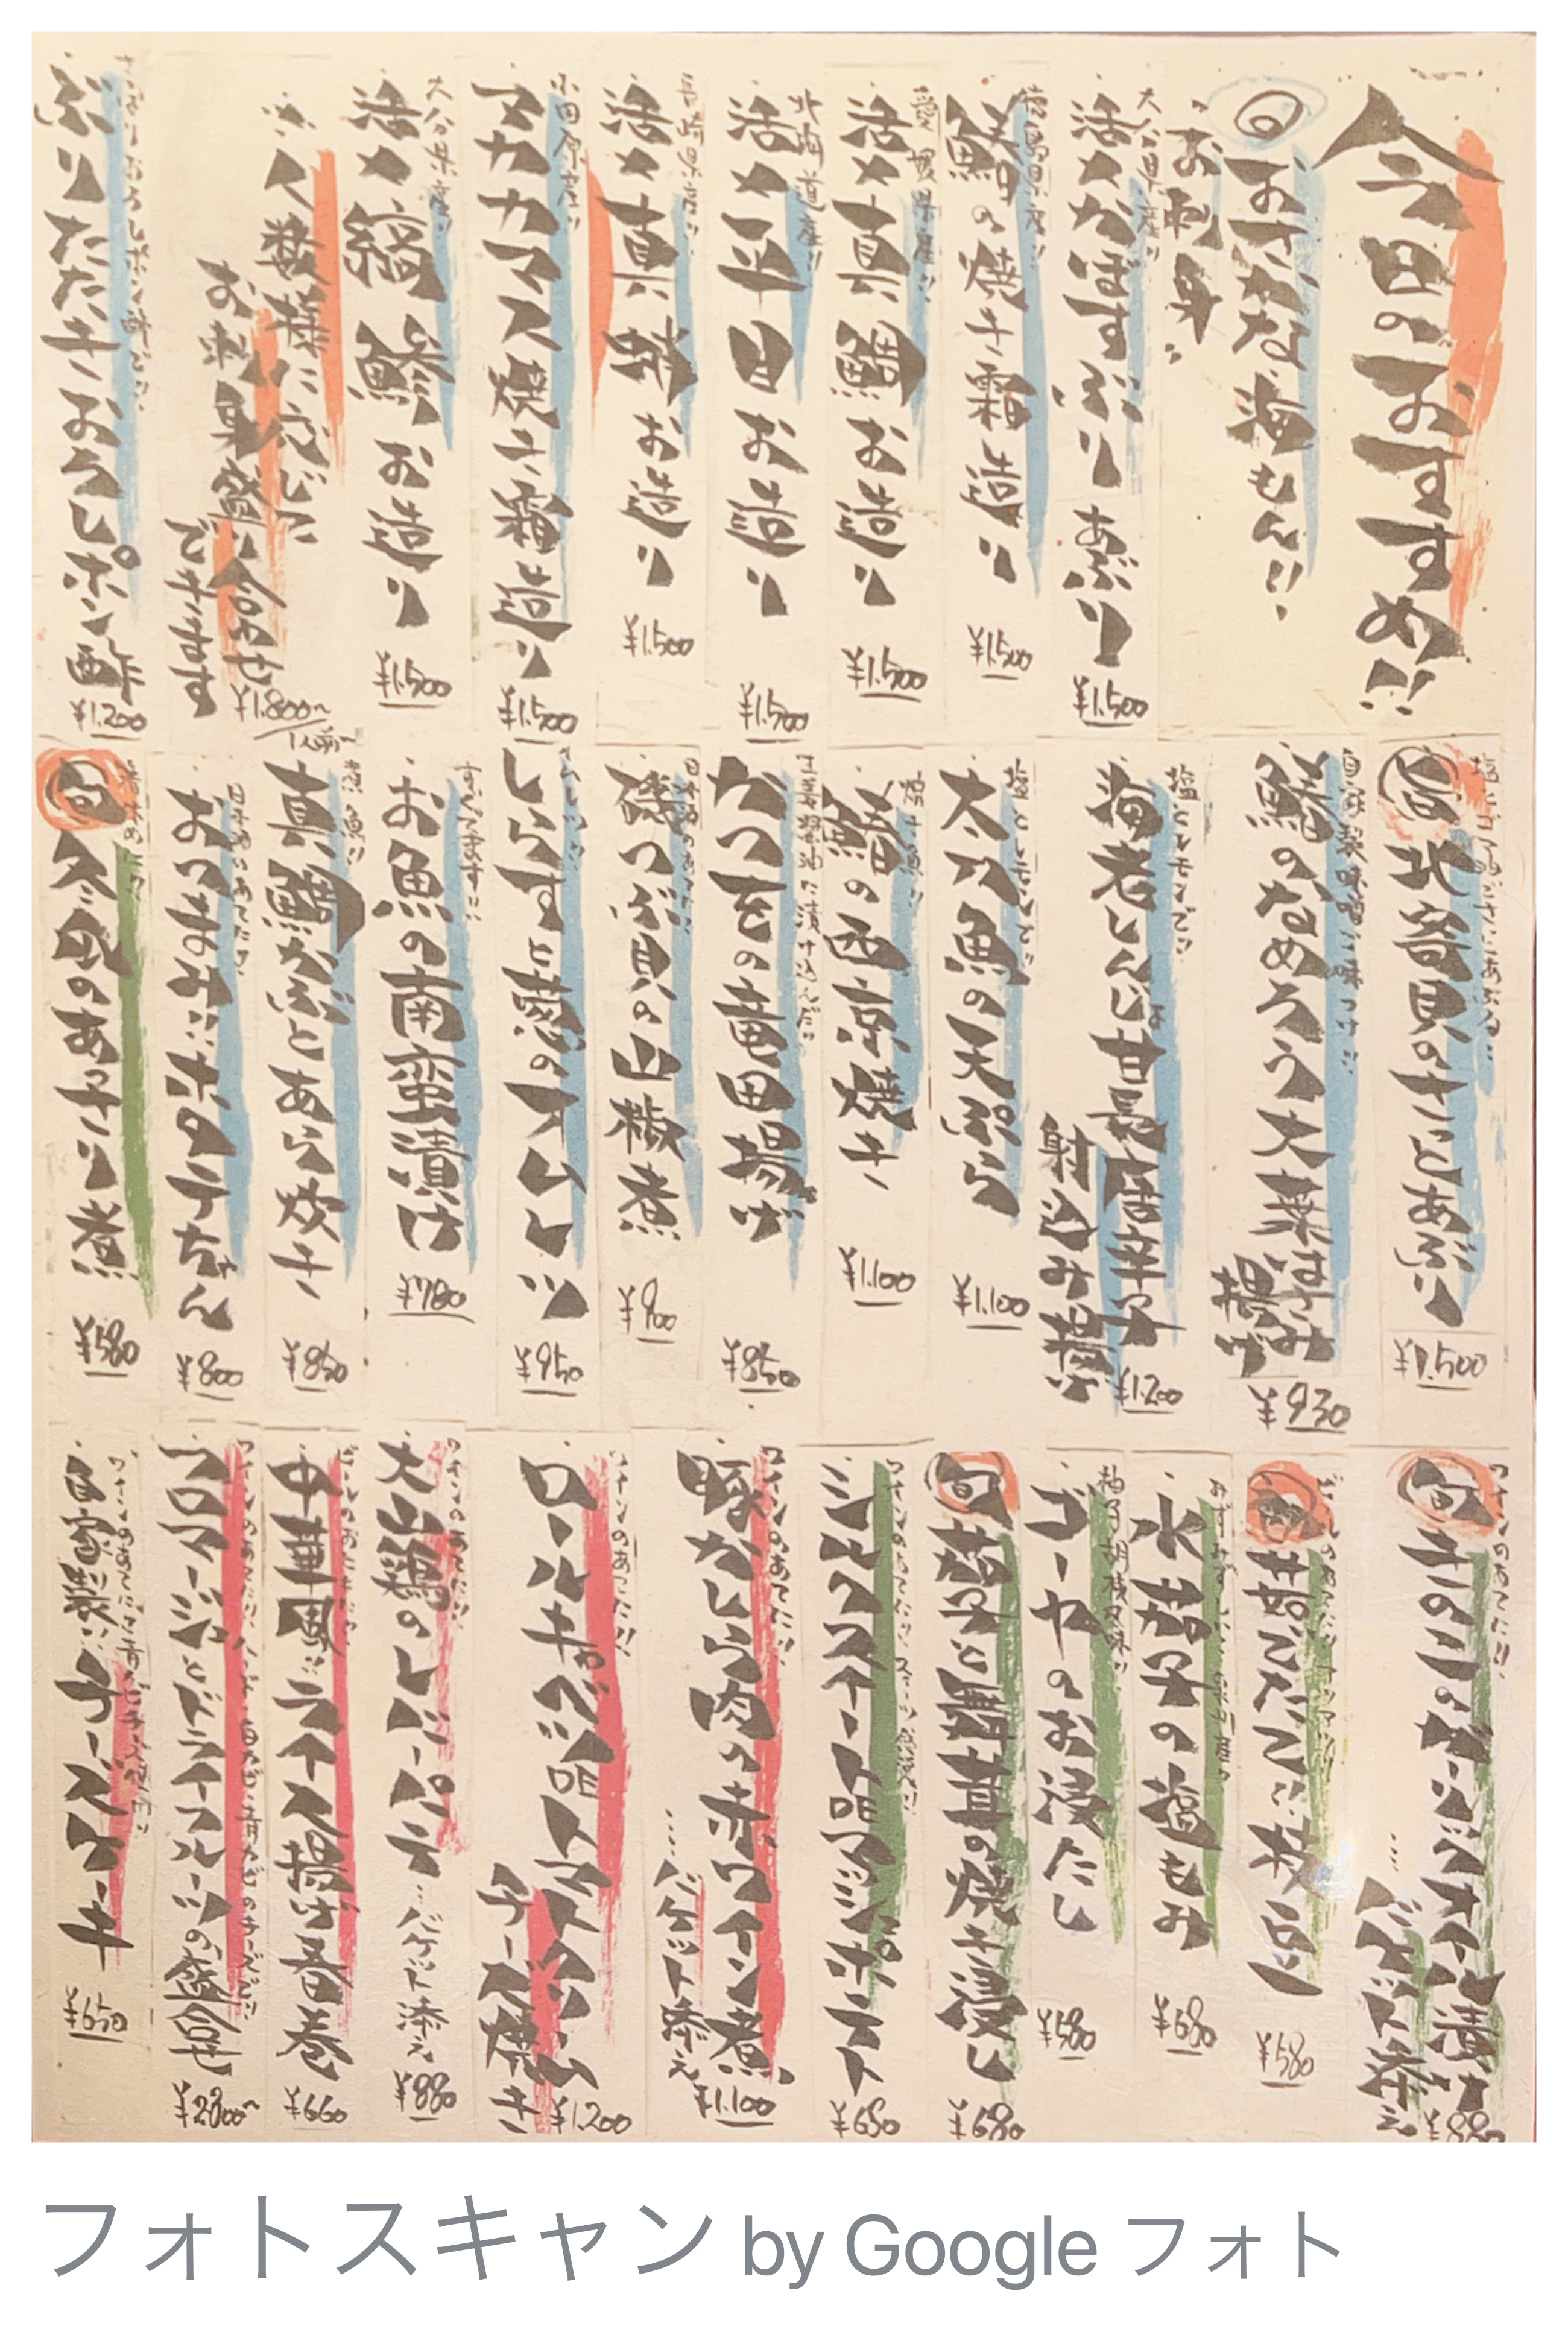 今日のおすすめ!!
旬 おすすめな海もん!!
お刺身
大分県産!!
活〆かぼすぶり あぶり
¥1.500
徳島県産!!
の焼き霜造り
¥1.500
愛媛県産!!
活〆真鯛お造り
¥1.500
北海道産!!
活〆平目お造り
¥1.500
長崎県産!!
活〆真蛸お造り
¥1.500
小田原産!!
アカカマス焼き霜造り
¥1.500
大分県産!!
活〆縞鯵お造り
¥1.500
人数様に応じて
お刺身盛り合わせ
できます
¥1.800〜
1人前〜
さっぱりおろしポン酢で!!
ぶりたたきおろしポン酢
¥1.200
塩とゴマ油でさっとあぶる!!
貝のさっとあぶり
¥1.500
自家製味噌で味つけ!!
鯵のなめろう大葉はさみ
揚げ
¥930
塩とレモンで!!
海老しんじょ甘長唐辛子
射込み揚げ
¥1.200
塩とレモンで!!
太刀魚の天ぷら
¥1.100
の西京焼き
¥1.100
生姜醤油に漬け込んだ!!
かつをの竜田揚げ
¥850
日本酒のあてに!!
磯つぶ貝の山椒煮
¥900
しらすと葱のオムレツ
¥950
すっぱうます!!
お魚の南蛮漬け
¥780
煮魚!!
真鯛かぶとあら炊き
¥850
日本酒のあてに!!
おつまみにホタテちゃん
¥800
旬 冬瓜のあっさり煮
¥580
ワインのあてに!!
旬 きのこのガーリックオイル漬け
....バケット添え
¥880
枝豆
¥580
水茄子の塩もみ
¥680
柚子胡椒風味!!
ゴーヤのお浸たし
¥580
旬 茄子と舞茸の焼き浸し
¥680
ワインのあてに!!
シルクスイートdeマッシュポテト
¥650
ワインのあてに!!
豚かしら肉の赤ワイン煮
....バケット添え
¥1.100
ワインのあてに!!
ロールキャベツdeトマトクリーム
チーズ焼き
¥1.200
ワインのあてに!!
大山鶏のレバーパテ…バゲット添え
¥880
ビールのあてに!!
中華風ライス揚げ春巻
¥660
フロマージュとドライフルーツの盛合せ
¥2.800〜
自家製チーズケーキ
¥650
フォトスキャン by Google フォト